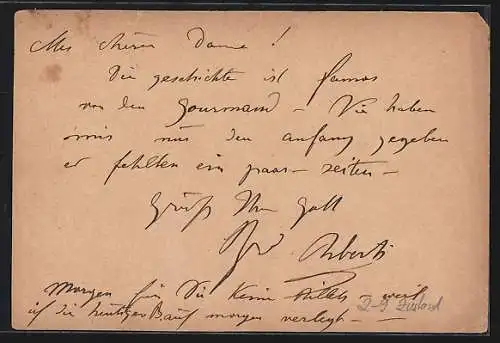 Dame !
Die geschichte ist famos
von den Gourmand – Sie haben
mir nur den anfang gegeben
es fehlten ein paar – seiten –
Grüß Ihn Gott
Morgen für Sie keine Billets – weil
ich die heutigen auf morgen verlegt –